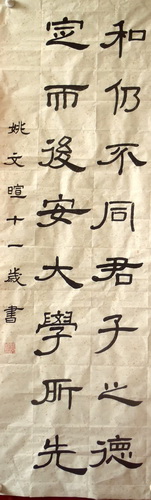 和仍不同君子之德
定而後安大學所先
姚文暄十一歲書